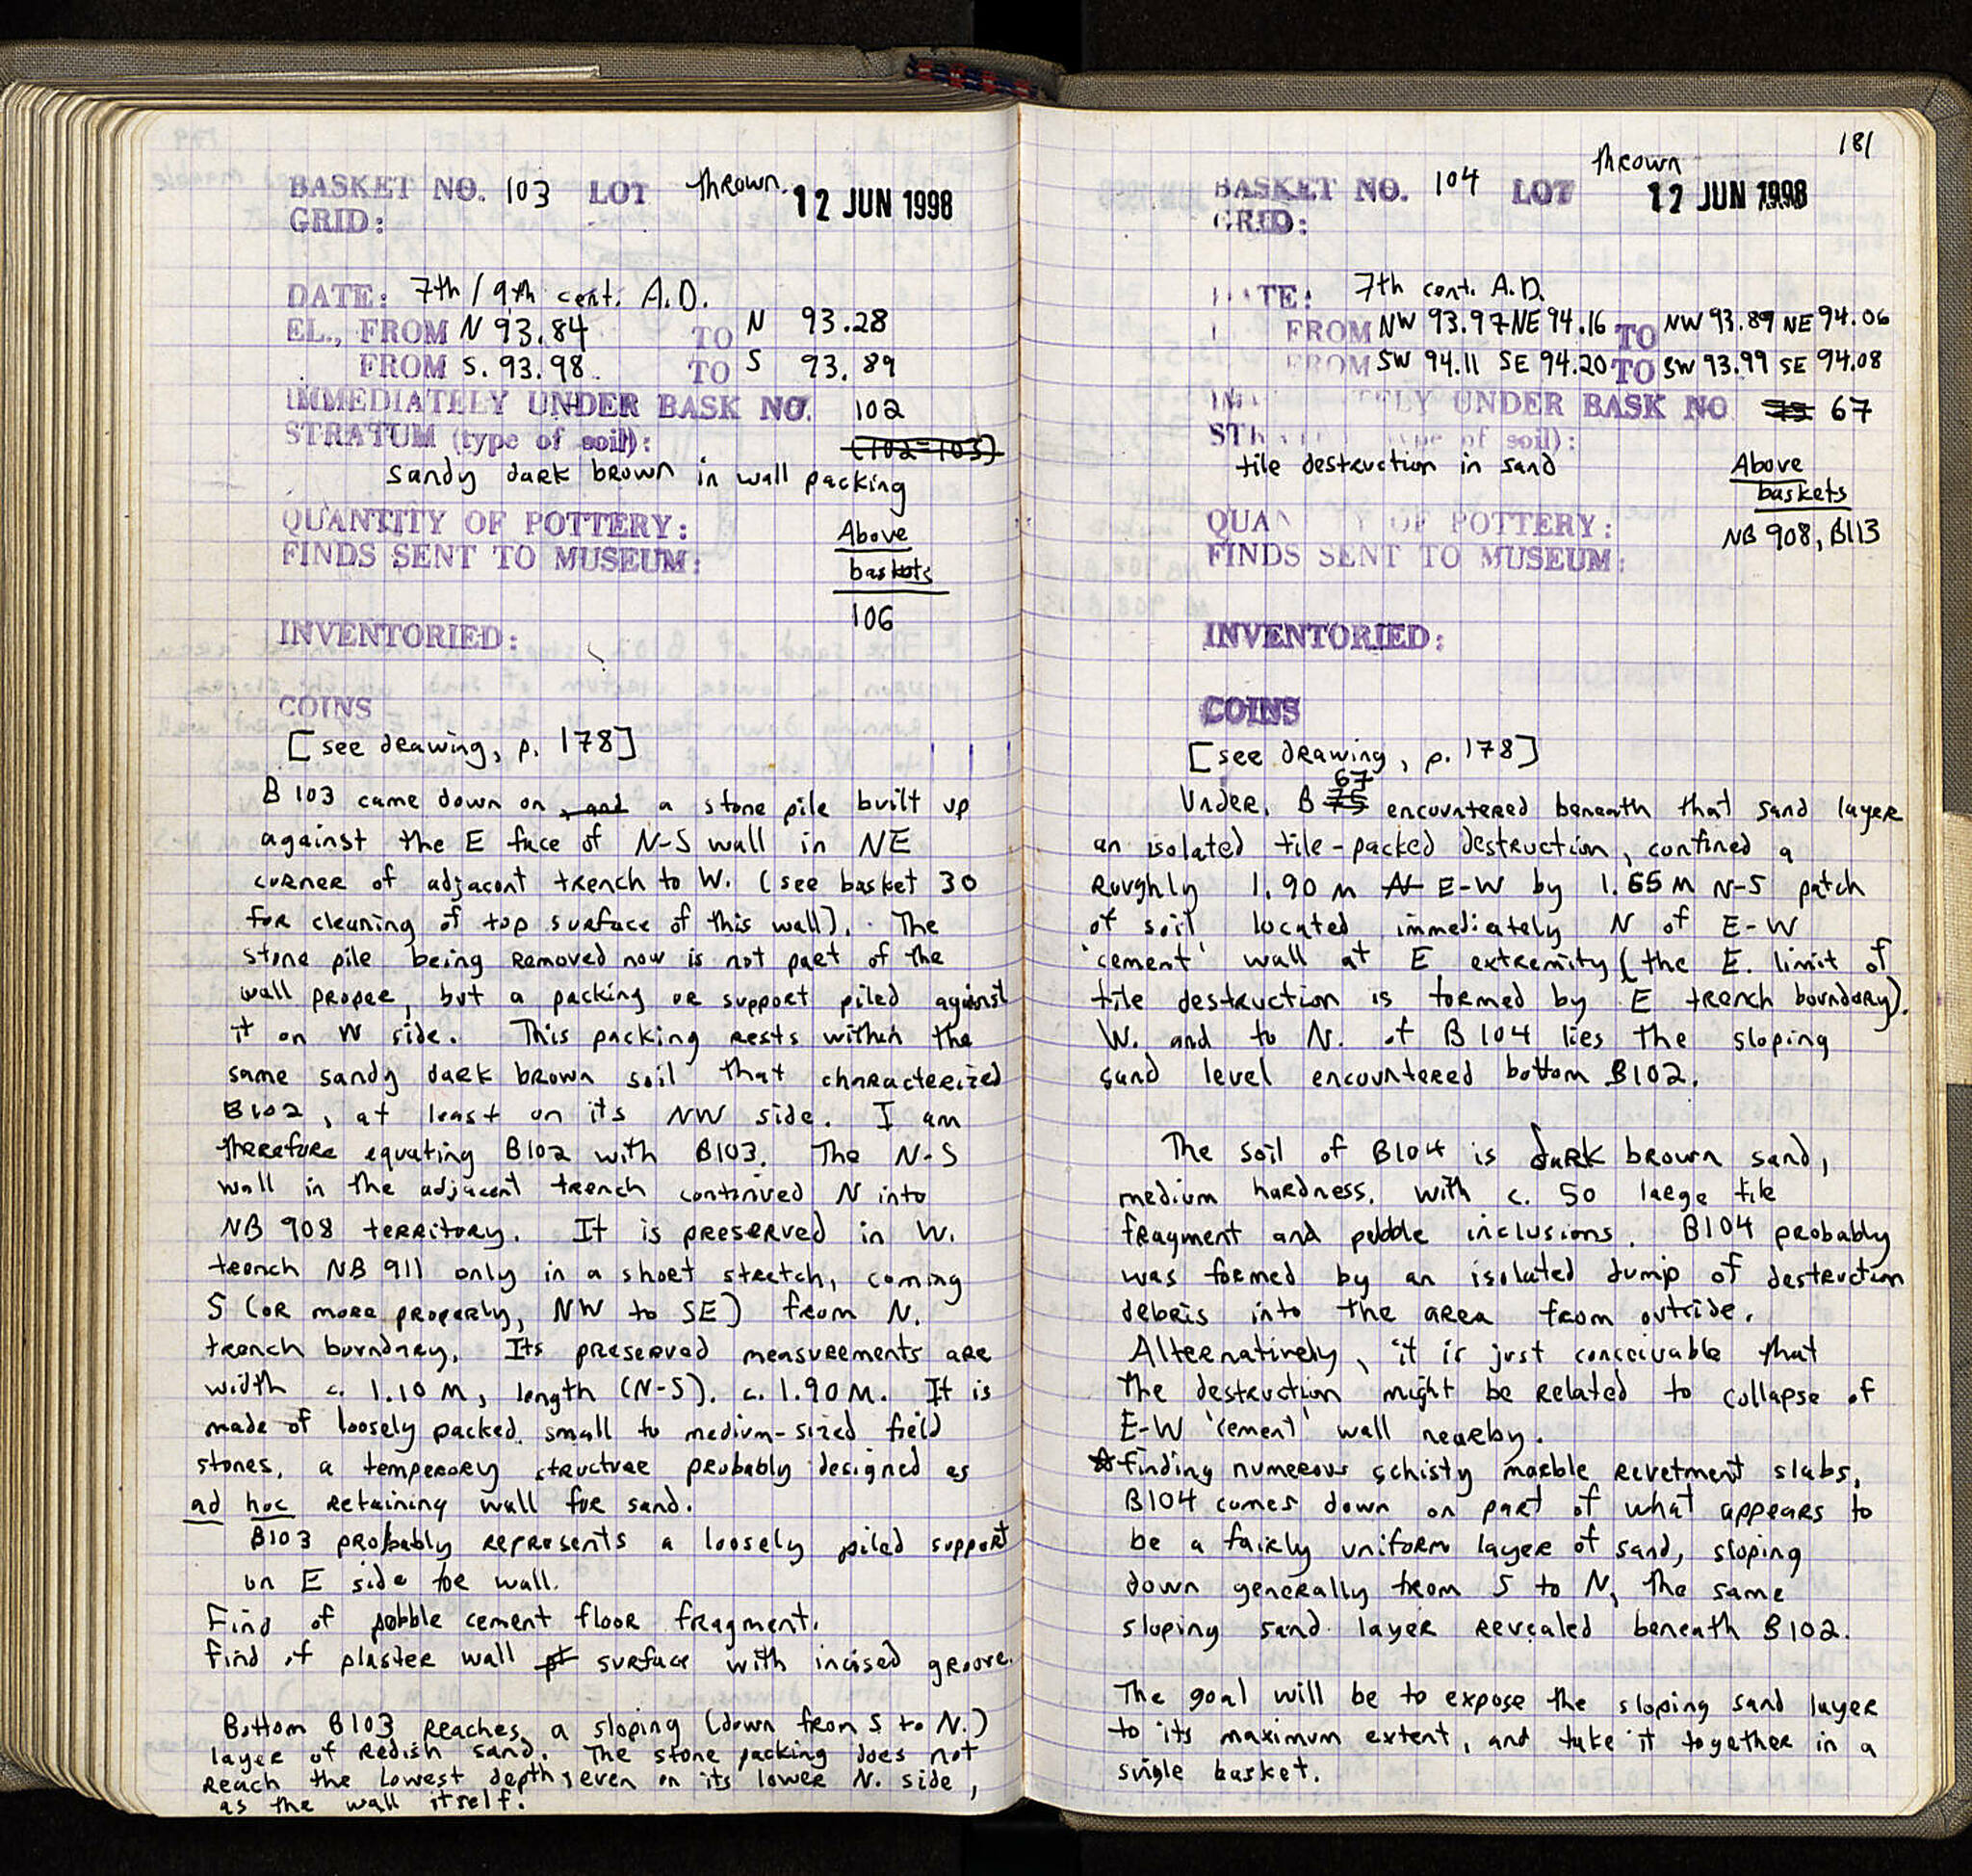 BASKET NO. 103 LOT thrown. 12 JUN 1998
GRID:
DATE: 7th / 9th cent. A.D.
EL., FROM N 93.84 TO N 93.28
FROM S. 93.98 TO S 93.89
IMMEDIATELY UNDER BASK NO. 102
STRATUM (type of soil): (102=103)
sandy dark brown in wall packing
QUANTITY OF POTTERY: Above
FINDS SENT TO MUSEUM: baskets
106
INVENTORIED:
COINS
[see drawing, p. 178]
B 103 came down on and a stone pile built up
against the E face of N-S wall in NE
corner of adjacent trench to W. (see basket 30
for cleaning of top surface of this wall). The
stone pile being removed now is not part of the
wall proper, but a packing or support piled against
it on W side. This packing rests within the
same sandy dark brown soil that characterized
B102, at least on its NW side. I am
therefore equating B102 with B103. The N-S
wall in the adjacent trench continued N into
NB 908 territory. It is preserved in W.
trench NB 911 only in a short stretch, coming
S (or more properly, NW to SE) from N.
trench boundary. Its preserved measurements are
width c. 1.10 M, length (N-S). c. 1.90 M. It is
made of loosely packed small to medium-sized field
stones, a temperory structure probably designed as
ad hoc retaining wall for sand.
B103 probably represents a loosely piled support
on E side for wall.
Find of pebble cement floor fragment.
Find of plaster wall pt surface with incised groove.
Bottom B103 reaches a sloping (down from S to N.)
layer of redish sand. The stone packing does not
reach the lowest depths, even on its lower N. side,
as the wall itself.
181
thrown
BASKET NO. 104 LOT 12 JUN 1998
GRID:
DATE: 7th cent. A.D.
FROM NW 93.97 NE 94.16 TO NW 93.89 NE 94.06
FROM SW 94.11 SE 94.20 TO SW 93.99 SE 94.08
IMMEDIATELY UNDER BASK NO 75 67
STRATUM (type of soil):
tile destruction in sand Above
baskets
QUANTITY OF POTTERY: NB 908, B113
FINDS SENT TO MUSEUM:
INVENTORIED:
COINS
[see drawing, p. 178]
67
Under. B 75 encountered beneath that sand layer
an isolated tile-packed destruction, confined a
roughly 1.90 m N E-W by 1.65 M N-S patch
of soil located immediately N of E-W
'cement' wall at E extremity (the E. limit of
tile destruction is formed by E trench boundary).
W. and to N. of B 104 lies the sloping
sand level encountered bottom B102.
The soil of B104 is dark brown sand,
medium hardness, with c. 50 large tile
fragment and pebble inclusions. B104 probably
was formed by an isolated dump of destruction
debris into the area from outside.
Alternatively, it is just conceivable that
the destruction might be related to collapse of
E-W 'cement' wall nearby.
☆ Finding numerous schisty marble revetment slabs,
B104 comes down on part of what appears to
be a fairly uniform layer of sand, sloping
down generally from S to N, the same
sloping sand layer revealed beneath B102.
The goal will be to expose the sloping sand layer
to its maximum extent, and take it together in a
single basket.